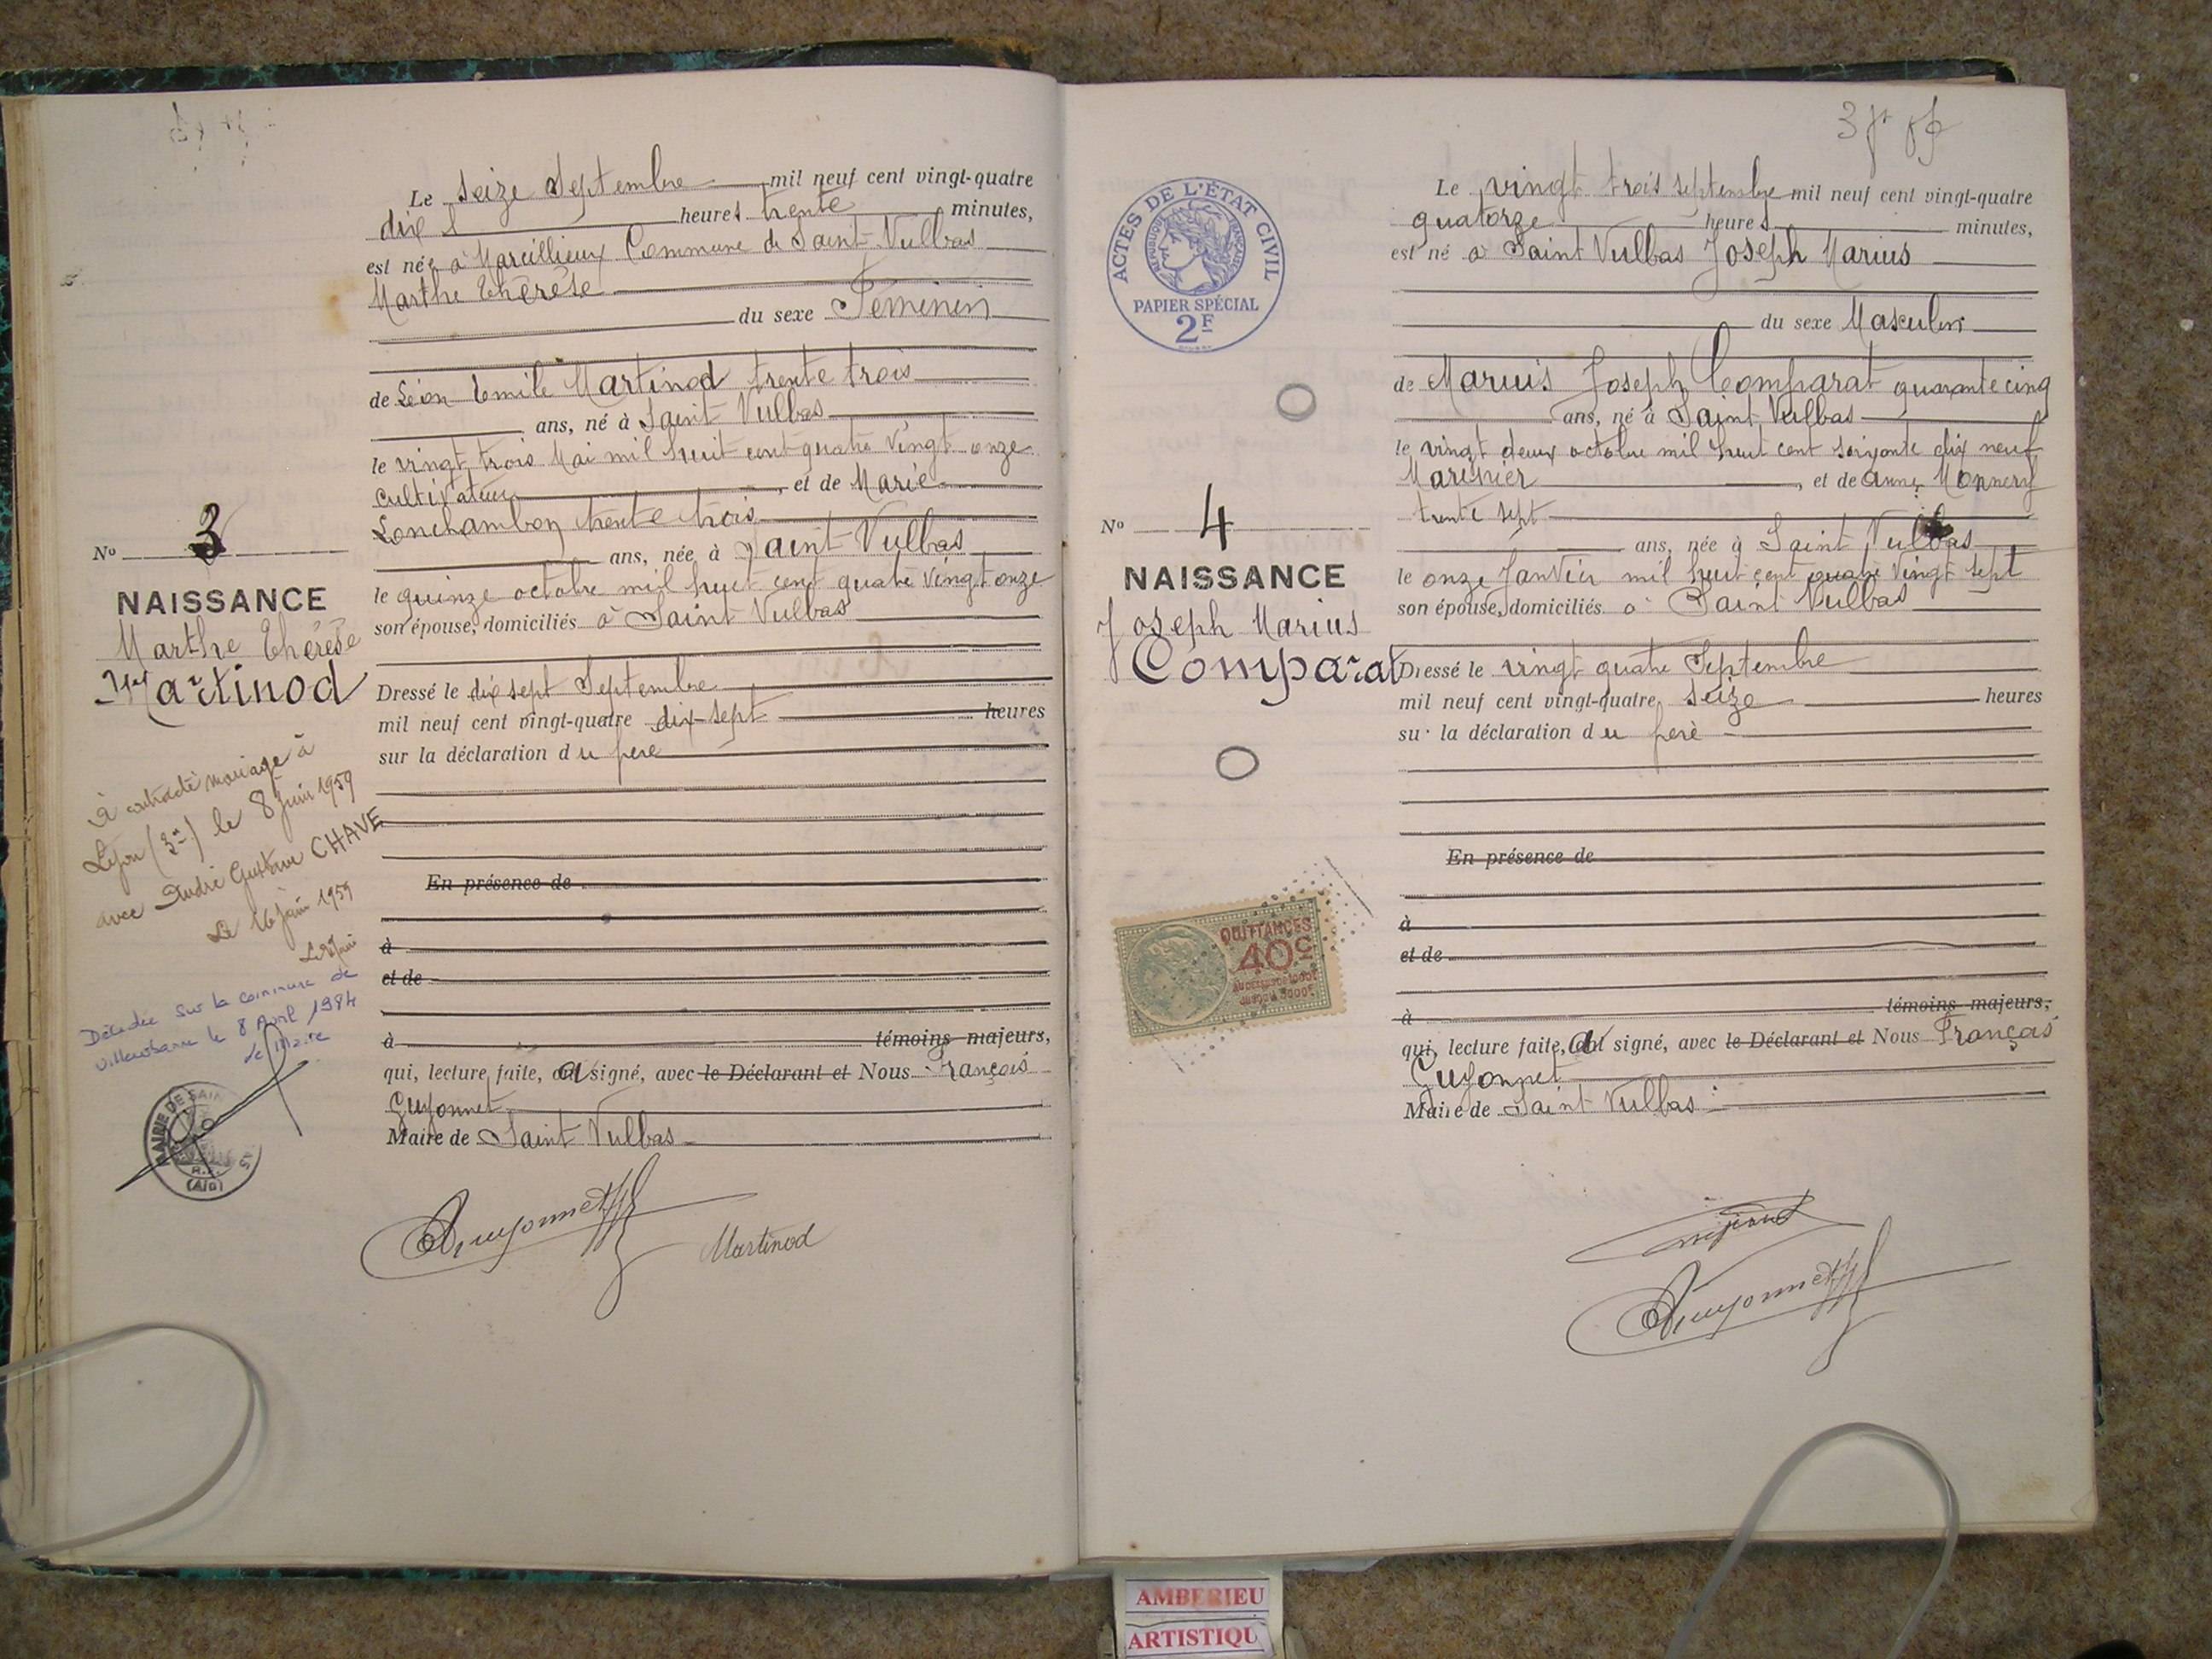 Le seize Septembre mil neuf cent vingt-quatre
dix heures trente minutes,
est née à Marcillieux Commune de Saint Vulbas
Marthe Thérèse
du sexe Féminin
de Léon Emile Martinod trente trois
ans, né à Saint Vulbas
le vingt trois Mai mil huit cent quatre vingt onze
Cultivateur, et de Marie
Lonchambon trente trois
ans, née à Saint Vulbas
le quinze octobre mil huit cent quatre vingt onze
son épouse, domiciliés à Saint Vulbas
Dressé le dix sept Septembre
mil neuf cent vingt-quatre dix-sept heures
sur la déclaration du père
En présence de
à
et de
à témoins majeurs,
qui, lecture faite, a signé, avec le Déclarant et Nous François
Guyonnet
Maire de Saint Vulbas
Guyonnet
Martinod
No 3
NAISSANCE
Marthe Thérèse
Martinod
A contracté mariage à
Lyon (3e) le 8 Juin 1959
avec André Gustave CHAVE
Le 16 Juin 1959
Décédée sur la commune de
Villeurbanne le 8 Avril 1984
le Maire
MAIRIE DE SAINT
(Ain)
ACTES DE L'ÉTAT CIVIL
RÉPUBLIQUE FRANÇAISE
PAPIER SPÉCIAL
2F
No 4
NAISSANCE
Joseph Marius
Comparat
QUITTANCES
40c
3
Le vingt trois septembre mil neuf cent vingt-quatre
quatorze heures minutes,
est né à Saint Vulbas Joseph Marius
du sexe Masculin
de Marius Joseph Comparat quarante cinq
ans, né à Saint Vulbas
le vingt deux octobre mil huit cent soixante dix neuf
Marinier, et de Anne Monnery
trente sept
ans, née à Saint Vulbas
le onze Janvier mil huit cent quatre vingt sept
son épouse, domiciliés à Saint Vulbas
Dressé le vingt quatre Septembre
mil neuf cent vingt-quatre, seize heures
sur la déclaration du père
En présence de
à
et de
à témoins majeurs,
qui, lecture faite, a signé, avec le Déclarant et Nous François
Guyonnet
Maire de Saint Vulbas
Guyonnet
AMBERIEU
ARTISTIQU